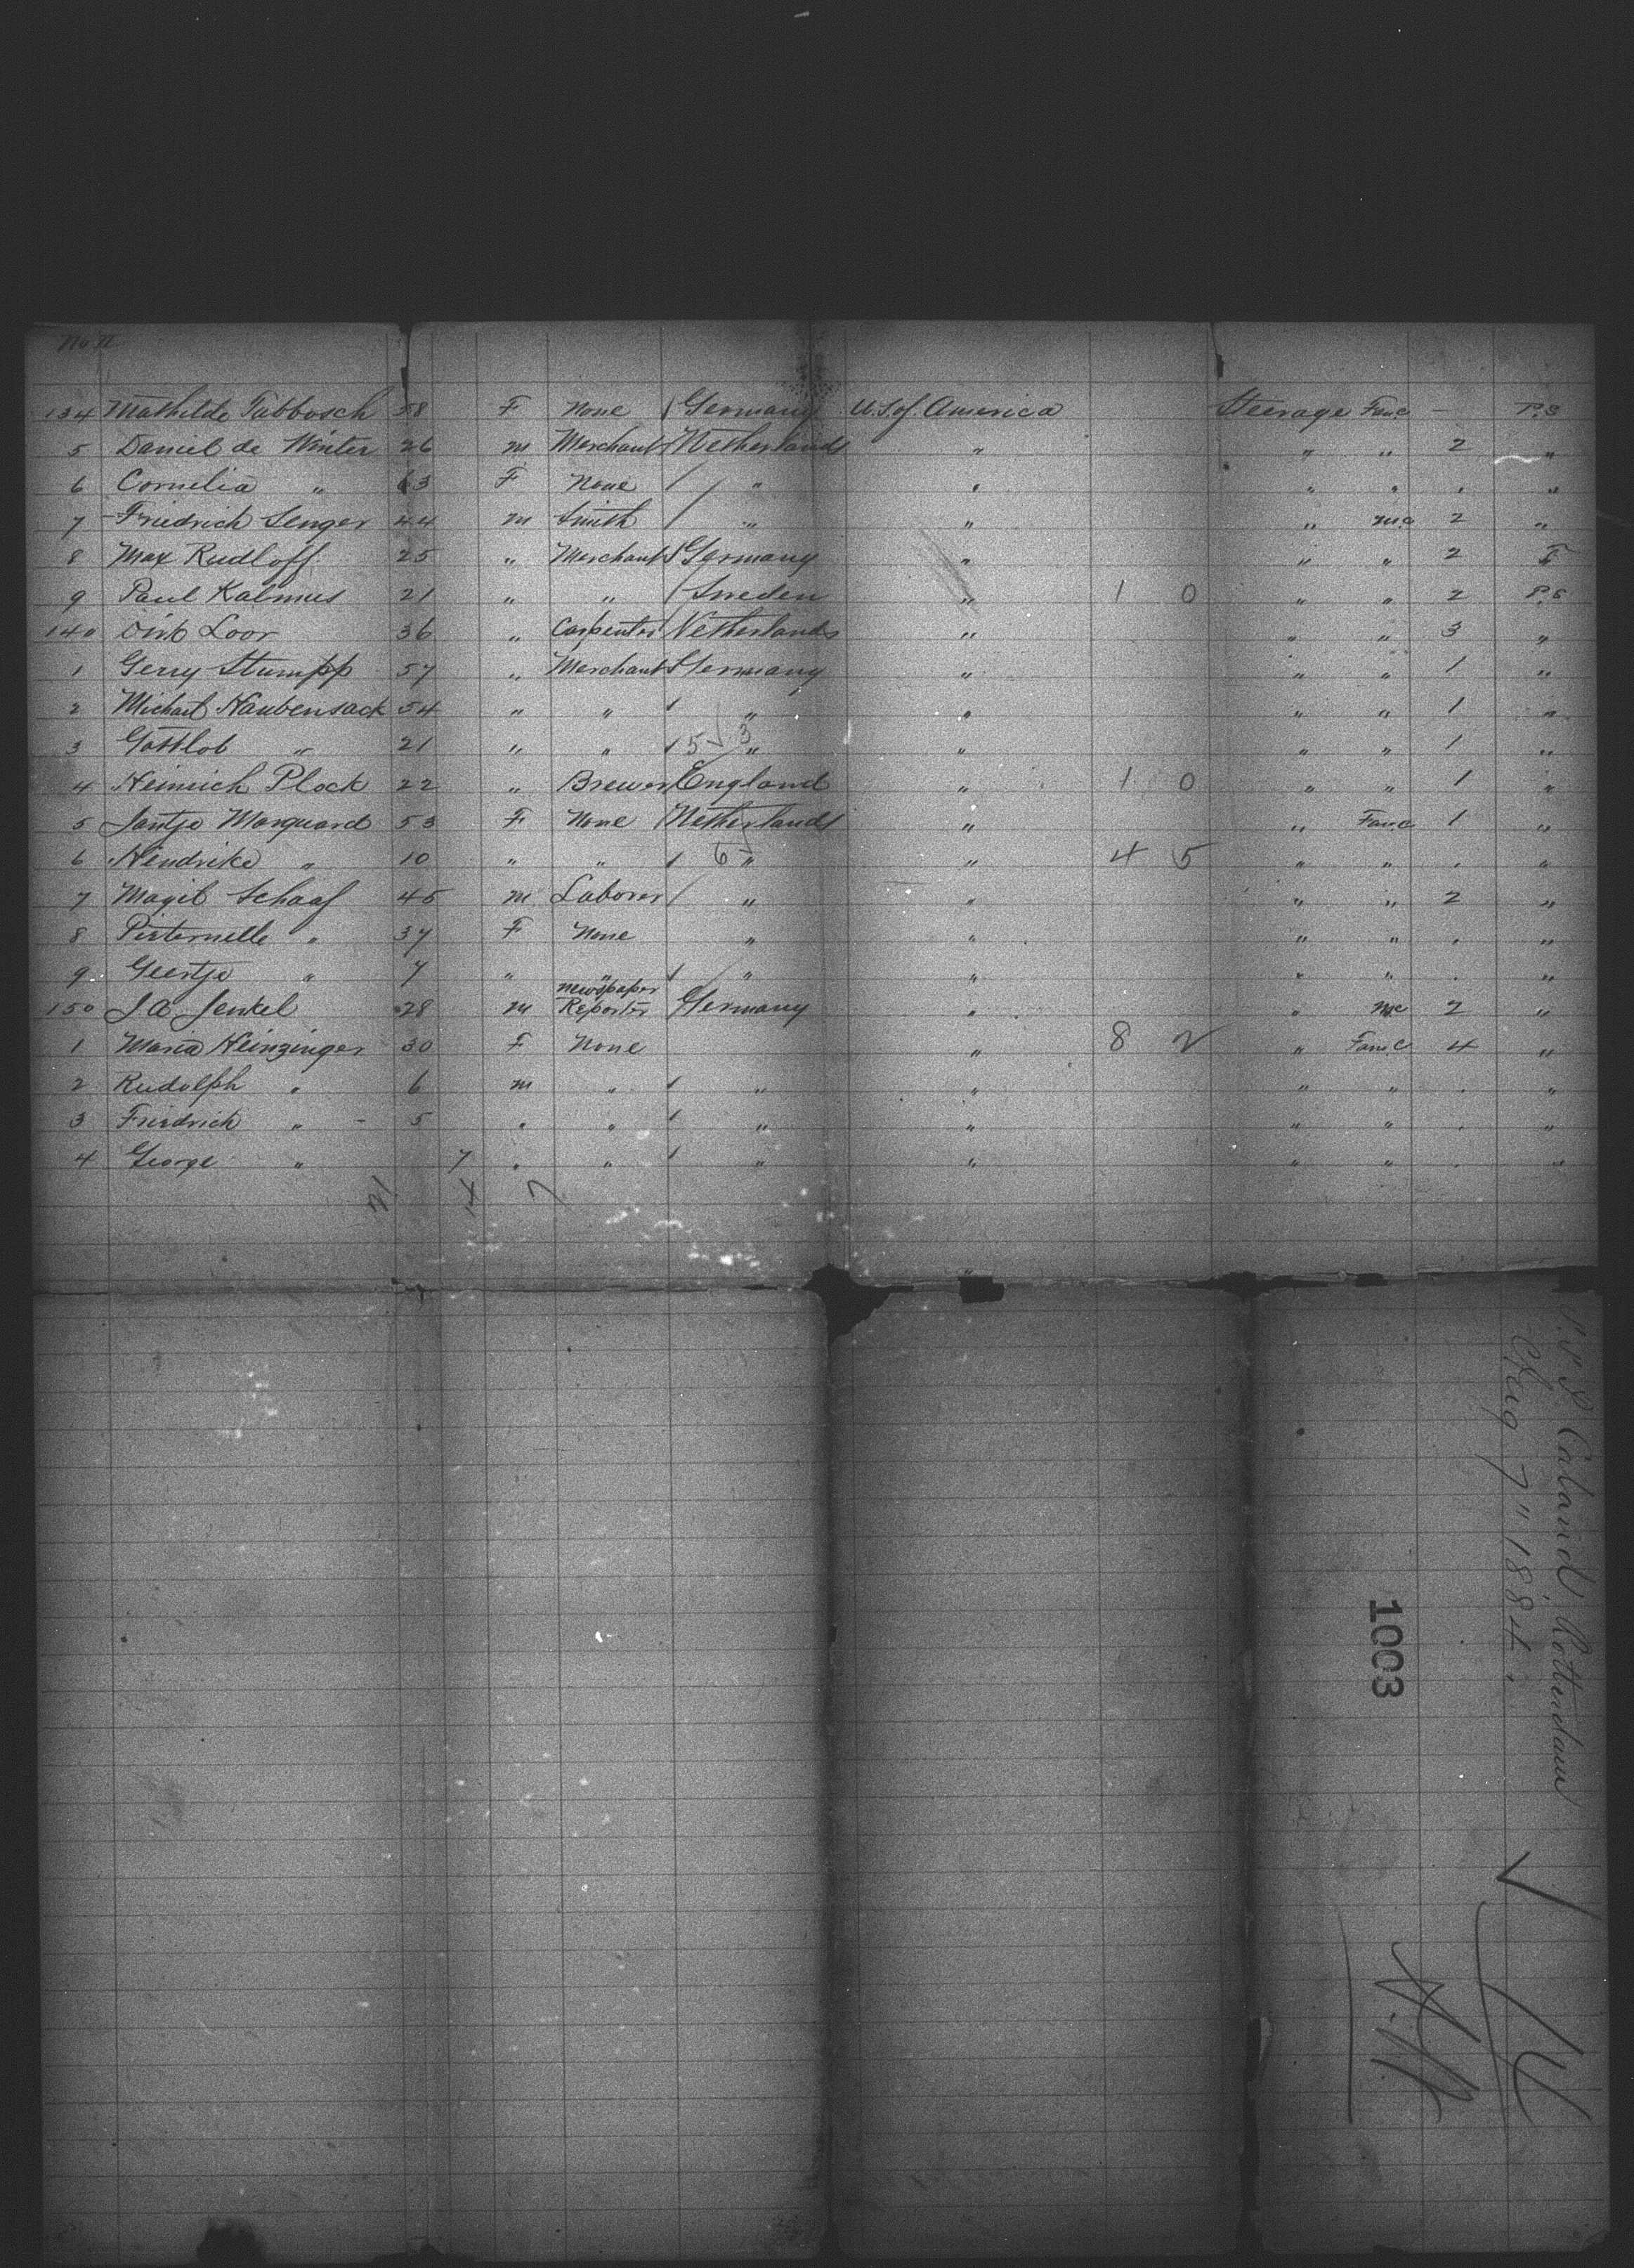 134 Mathilde Tabbosch 58 F None Germany U.S. of America Steerage Fanc - P.S
5 Daniel de Winter 26 m Merchant Netherlands " " " 2 "
6 Cornelia " 63 F None " " " " . "
7 Friedrich Senger 44 m Smith " " " mc 2 "
8 Max Rudloff 25 " Merchant Germany " " " 2 F
9 Paul Kalmus 21 " " Sweden " 1 0 " " 2 P.S
140 Dirk Loor 36 " Carpenter Netherlands " " " 3 "
1 Gerry Stumpp 57 " Merchant Germany " " " 1 "
2 Michael Haubensack 54 " " " " " " 1 "
3 Gottlob " 21 " " 5 3 " " " " 1 "
4 Heinrich Plock 22 " Brewer England " 1 0 " " 1 "
5 Jantje Marquard 53 F None Netherlands " " Fanc 1 "
6 Hendrike " 10 " " 6 " " 4 5 " " . "
7 Magit Schaaf 45 m Laborer " " " " 2 "
8 Pieternelle " 37 F None " " " " . "
9 Geertje " 7 " " " " " " . "
150 J A Jenkel 28 m newspaper Reporter Germany " " mc 2 "
1 Maria Heinzinger 30 F None " 8 2 " Fanc 4 "
2 Rudolph " 6 m " " " " " . "
3 Friedrich " - 5 " " " " " " . "
4 George " 7 " " " " " " . "
14 4 7
S.S. P. Caland, Rotterdam
Aug 7" 1884.
1003